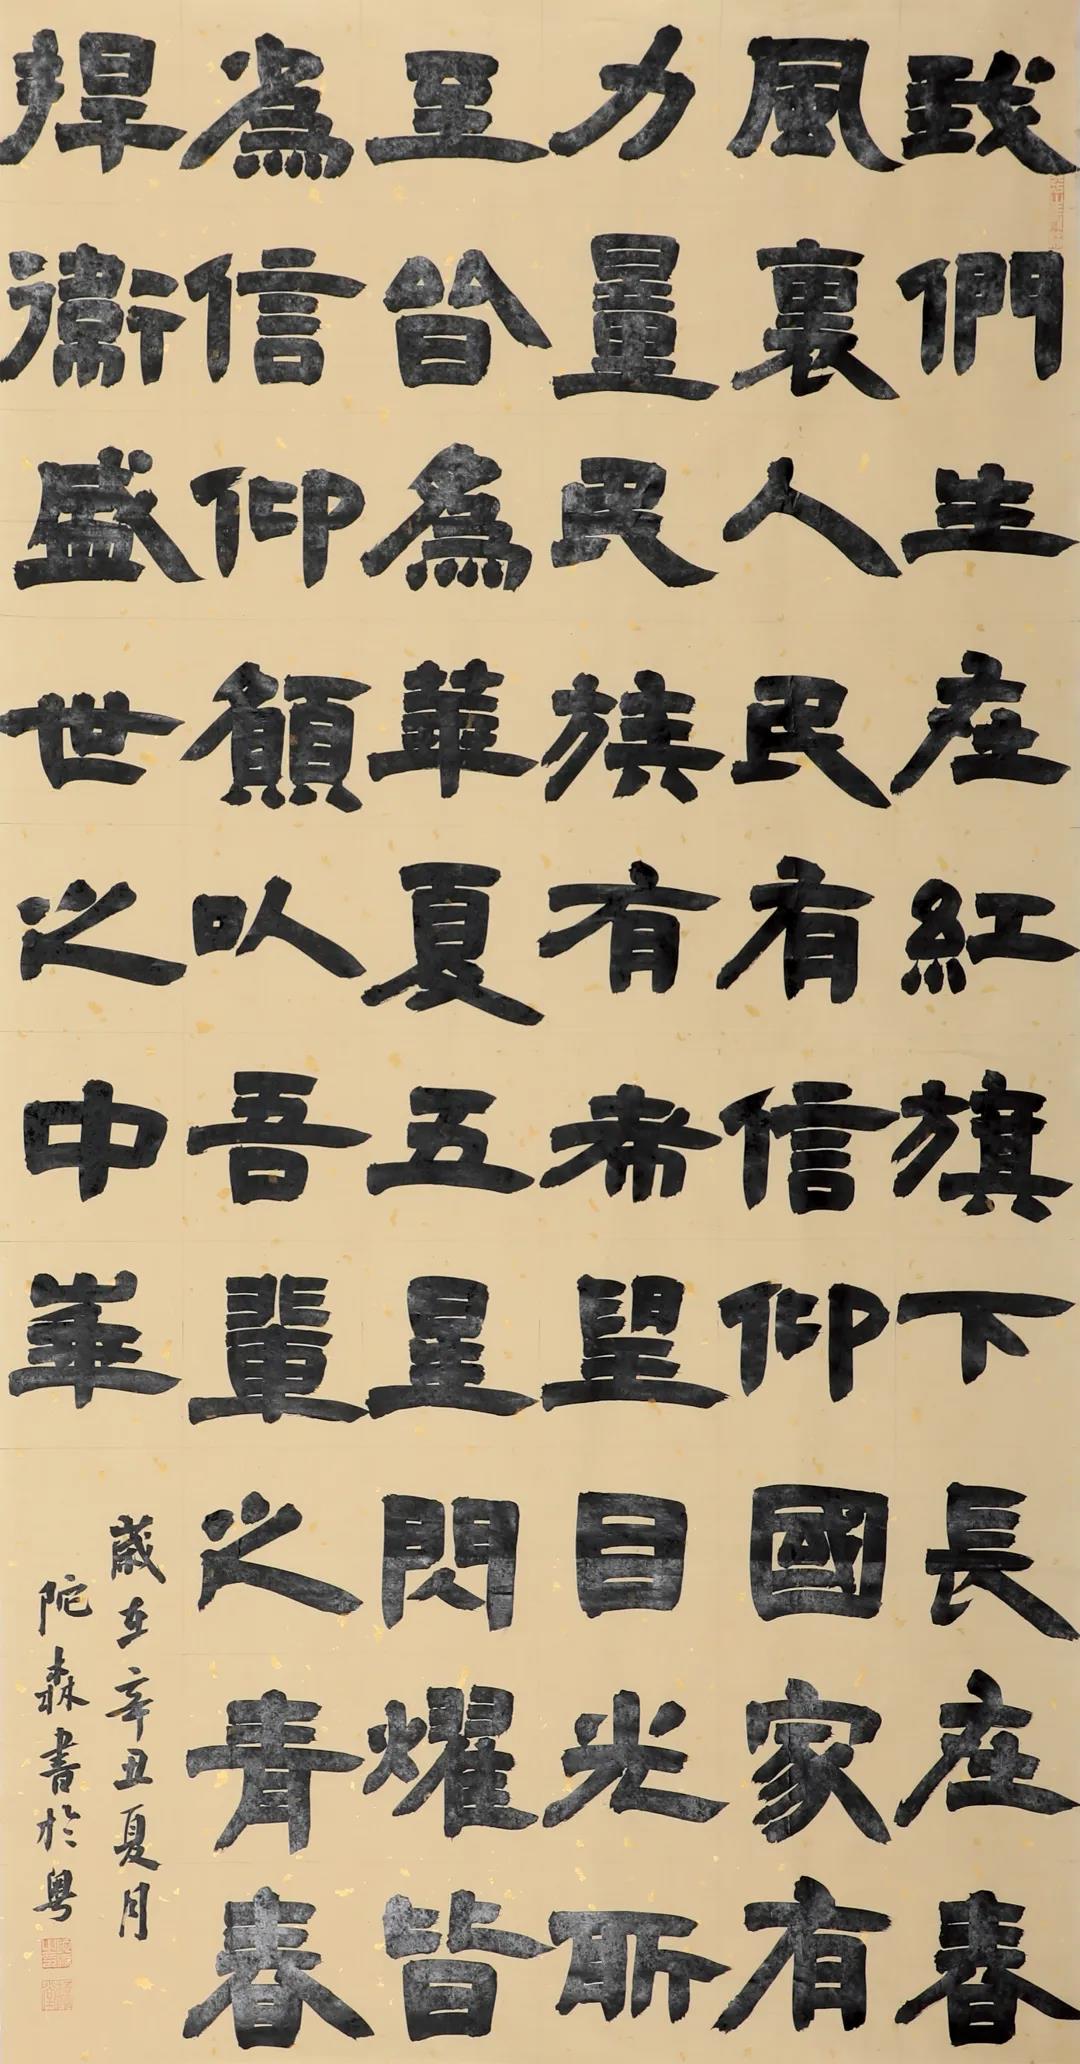 我們生在紅旗下長在春
風裏人民有信仰國家有
力量民族有希望目光所
至皆為華夏五星閃耀皆
為信仰願以吾輩之青春
捍衛盛世之中華
歲在辛丑夏月
陀森書於粵